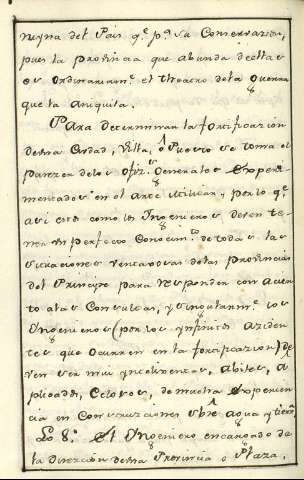 ruyna del Pais q.e p.a Su Conservazion,
pues la Provincia que abunda de ellas
es Ordinariam.te el theatro de la Guerra
que la Aniquila.
Para determinar la fortificazion
de una Ciudad, Villa, ó Puerto se toma el
parezer de los ofiz.s Generales Experi-
mentados en el Arte Militar, por lo q.e
asi estos como los Ingenieros deven te-
ner un perfecto Conocim.to de todas las
situaciones ventajosas de las Provincias
del Principe para responder con acier-
to a las Consultas, y singularm.te los
Ingenieros (por los ynfinitos Aziden-
tes que Ocurren en la fortificazion) de
ven ser muy Yntelixentes, Abiles, A
plicados, Celosos, de mucha Experien-
cia en Construcziones sbre agua y tierra
Lo 8.o El Ingeniero encargado de
la Direczion de una Provincia o Plaza,